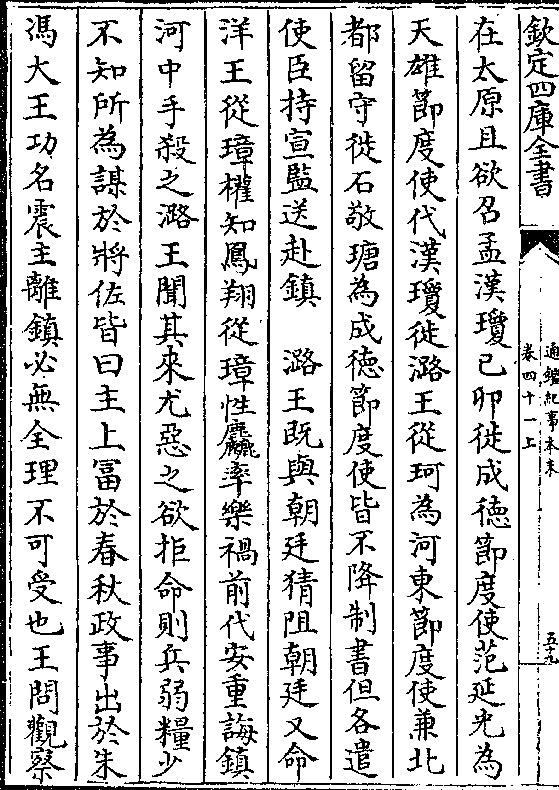 欽定四庫全書
通鑑紀事本末
卷四十一上
五十九
在太原且欲召孟漢瓊己卯徙成徳節度使范延光為
天雄節度使代漢瓊徙潞王從珂為河東節度使兼北
都留守徙石敬瑭為成徳節度使皆不降制書但各遣
使臣持宣監送赴鎮　潞王既與朝廷猜阻朝廷又命
洋王從璋權知鳳翔從璋性麤率樂禍前代安重誨鎮
河中手殺之潞王聞其來尤惡之欲拒命則兵弱糧少
不知所為謀於將佐皆曰主上富於春秋政事出於朱
馮大王功名震主離鎮必無全理不可受也王問觀察